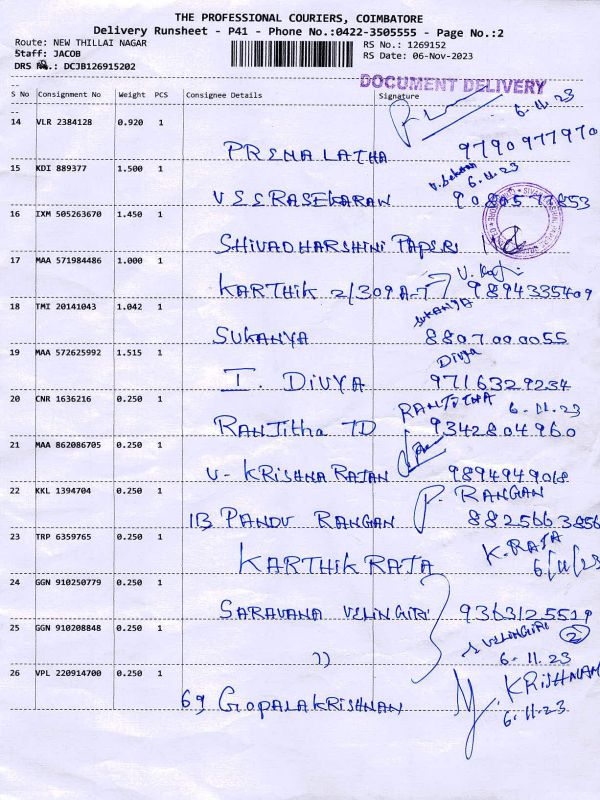 THE PROFESSIONAL COURIERS, COIMBATORE
Delivery Runsheet - P41 - Phone No.:0422-3505555 - Page No.:2
Route: NEW THILLAI NAGAR RS No.: 1269152
Staff: JACOB RS Date: 06-Nov-2023
DRS No.: DCJB126915202
DOCUMENT DELIVERY
S No Consignment No Weight PCS Consignee Details Signature
6-11-23
14 VLR 2384128 0.920 1
PREMALATHA 9790977970
15 KDI 889377 1.500 1 6.11.23
VEERASEKARAN 9080577853
16 IXM 505263670 1.450 1
SHIVADHARSHINI PAPERS
17 MAA 571984486 1.000 1
KARTHIK 2/309A-7 9894335409
18 TMI 20141043 1.042 1 SUKANYA
SUKANYA 8807000055
19 MAA 572625992 1.515 1 Divya
I. DIVYA 9716329234
20 CNR 1636216 0.250 1 RANJITHA 6-11-23
RANJitha TD 9342804960
21 MAA 862086705 0.250 1
V- KRISHNA RAJAN 9894949068
22 KKL 1394704 0.250 1 P. RANGAN
11B PANDU RANGAN 8825663856
23 TRP 6359765 0.250 1 K.RAJA
KARTHIK RAJA 6/11/23
24 GGN 910250779 0.250 1
SARAVANA VELINGIRI 9363125519
25 GGN 910208848 0.250 1 S VELINGIRI 2
)) 6-11.23
26 VPL 220914700 0.250 1 KRISHNAN
69 GOPALAKRISHNAN 6-11.23